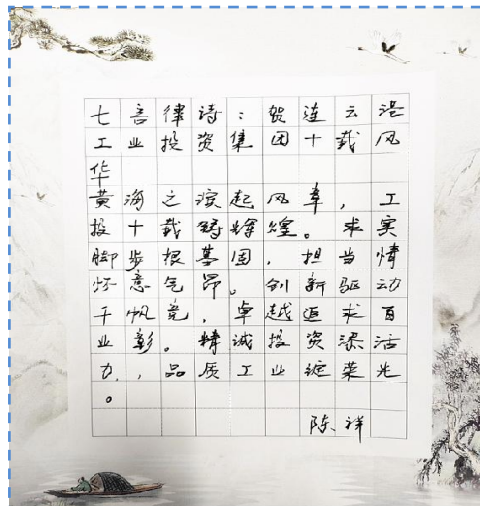 七言律诗：贺连云港
工业投资集团十载风
华
黄海之滨起风章，工
投十载铸辉煌。求实
脚步根基固，担当情
怀意气昂。创新驱动
千帆竞，卓越追求百
业彰。精诚投资添活
力，品质工业绽荣光
。
陈祥